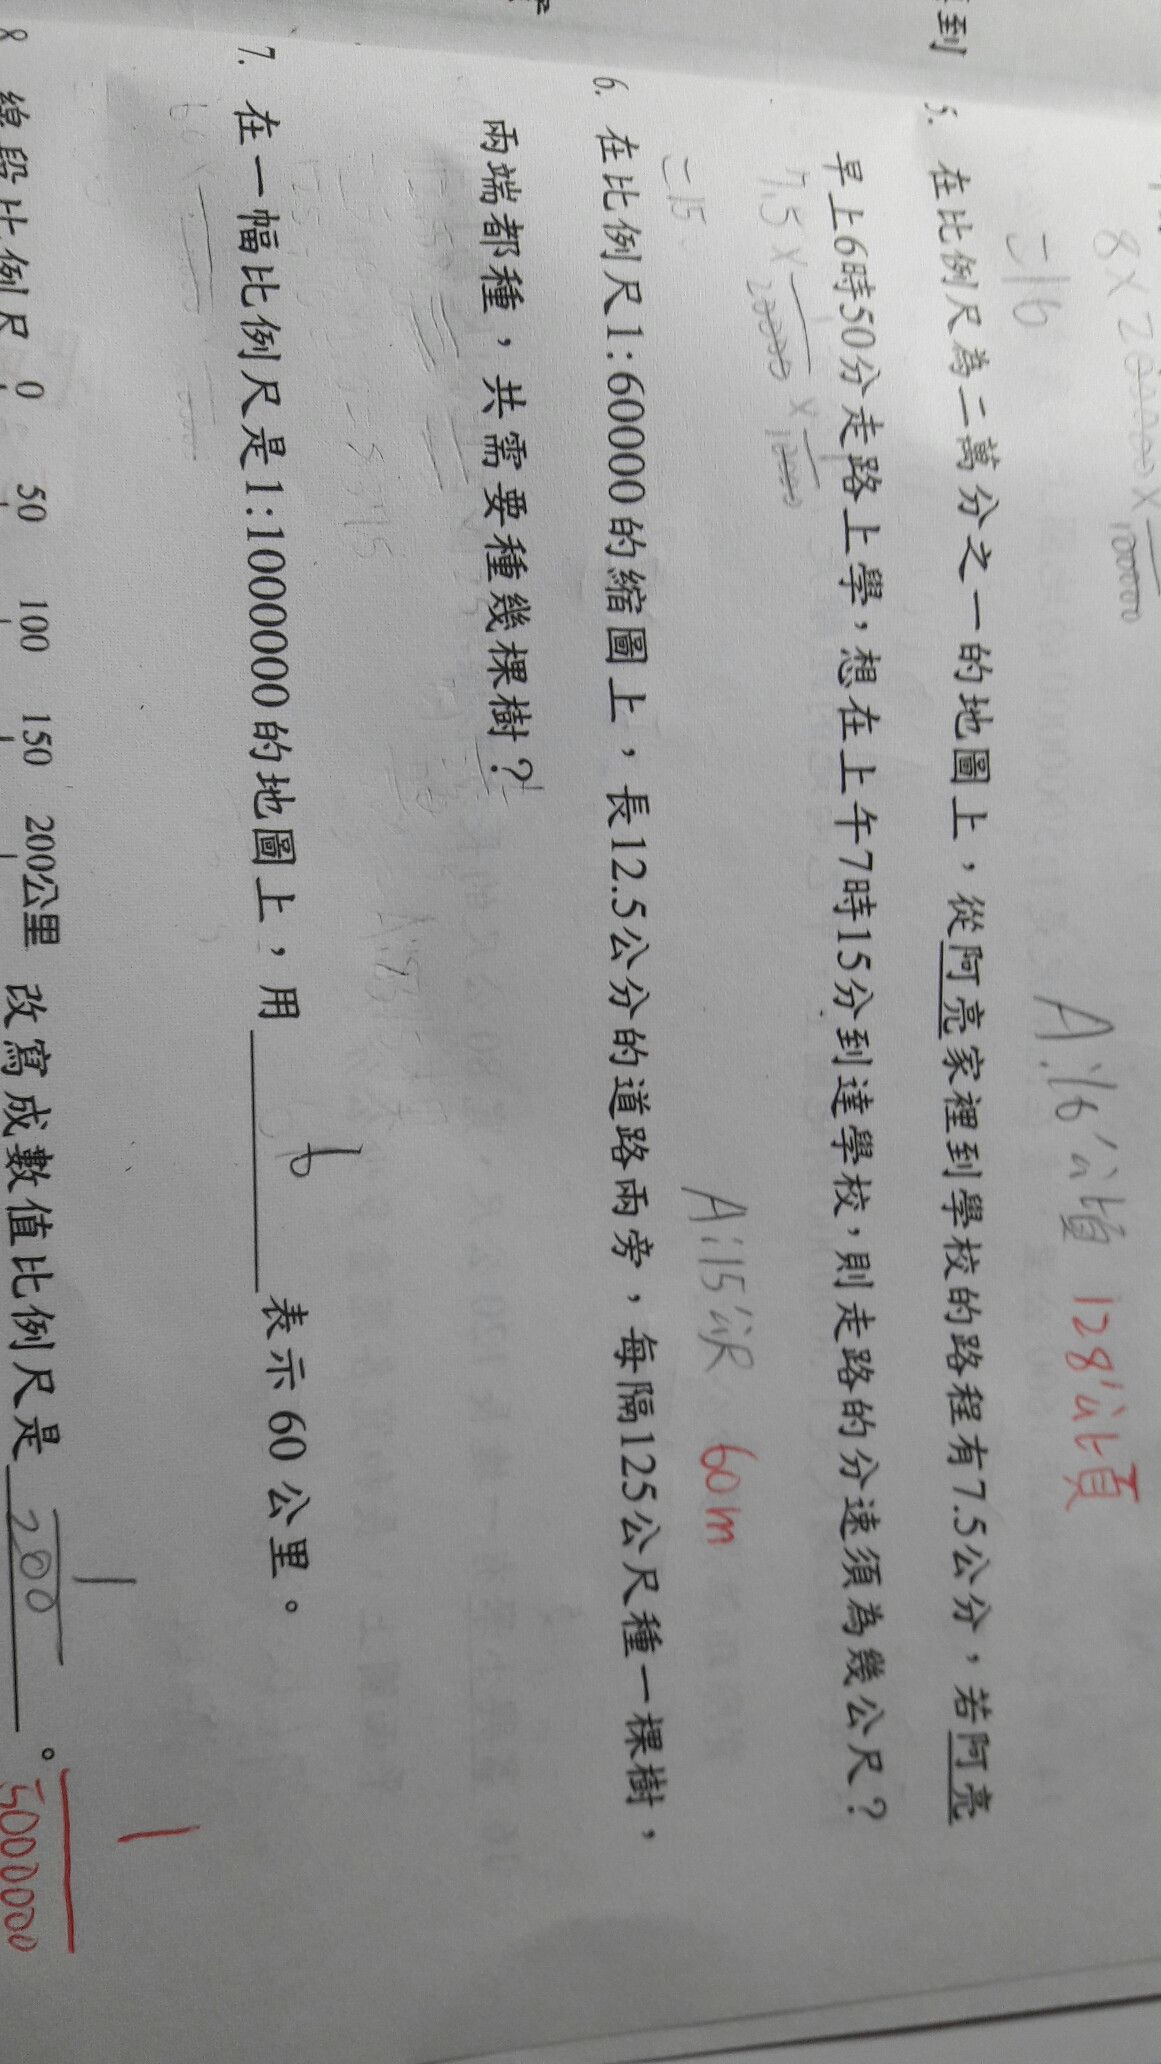 到
8×20000×1/100000
=16
A:16公頃 128公頃
5. 在比例尺為二萬分之一的地圖上，從阿亮家裡到學校的路程有7.5公分，若阿亮
早上6時50分走路上學，想在上午7時15分到達學校，則走路的分速須為幾公尺？
7.5×1/20000×1/10000
=15
A:15公尺 60m
6. 在比例尺1:60000的縮圖上，長12.5公分的道路兩旁，每隔125公尺種一棵樹，
兩端都種，共需要種幾棵樹？
7. 在一幅比例尺是1:1000000的地圖上，用 6 表示60公里。
8 線段比例尺 0 50 100 150 200公里 改寫成數值比例尺是 1/200 。 1/5000000